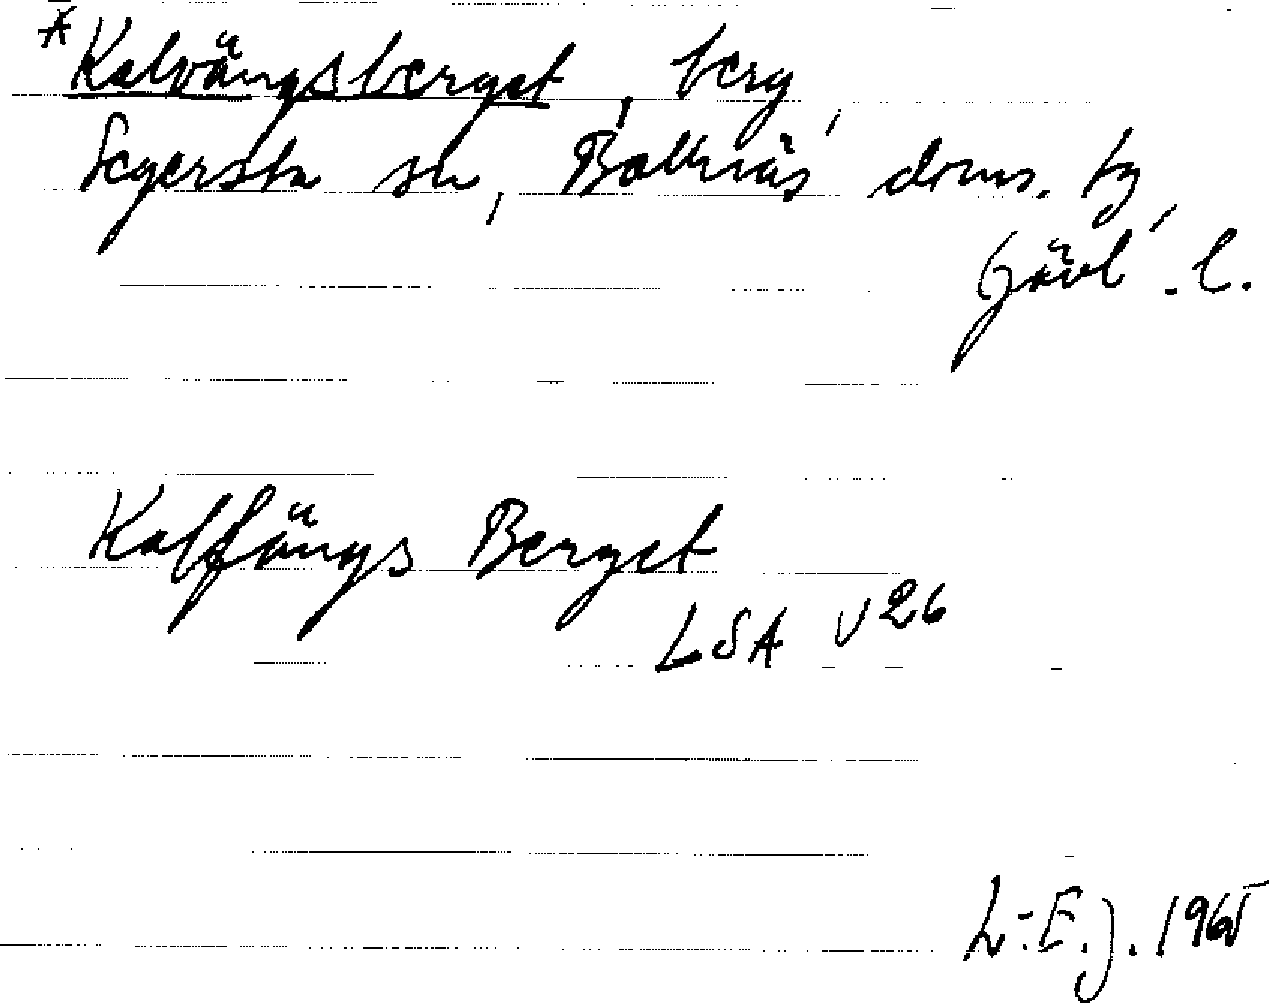 *Kalvängsberget, berg,
Segersta sn, Bollnäs doms. tg,
Gävl. l.
Kalfängs Berget
LSA V26
L-E.J. 1965